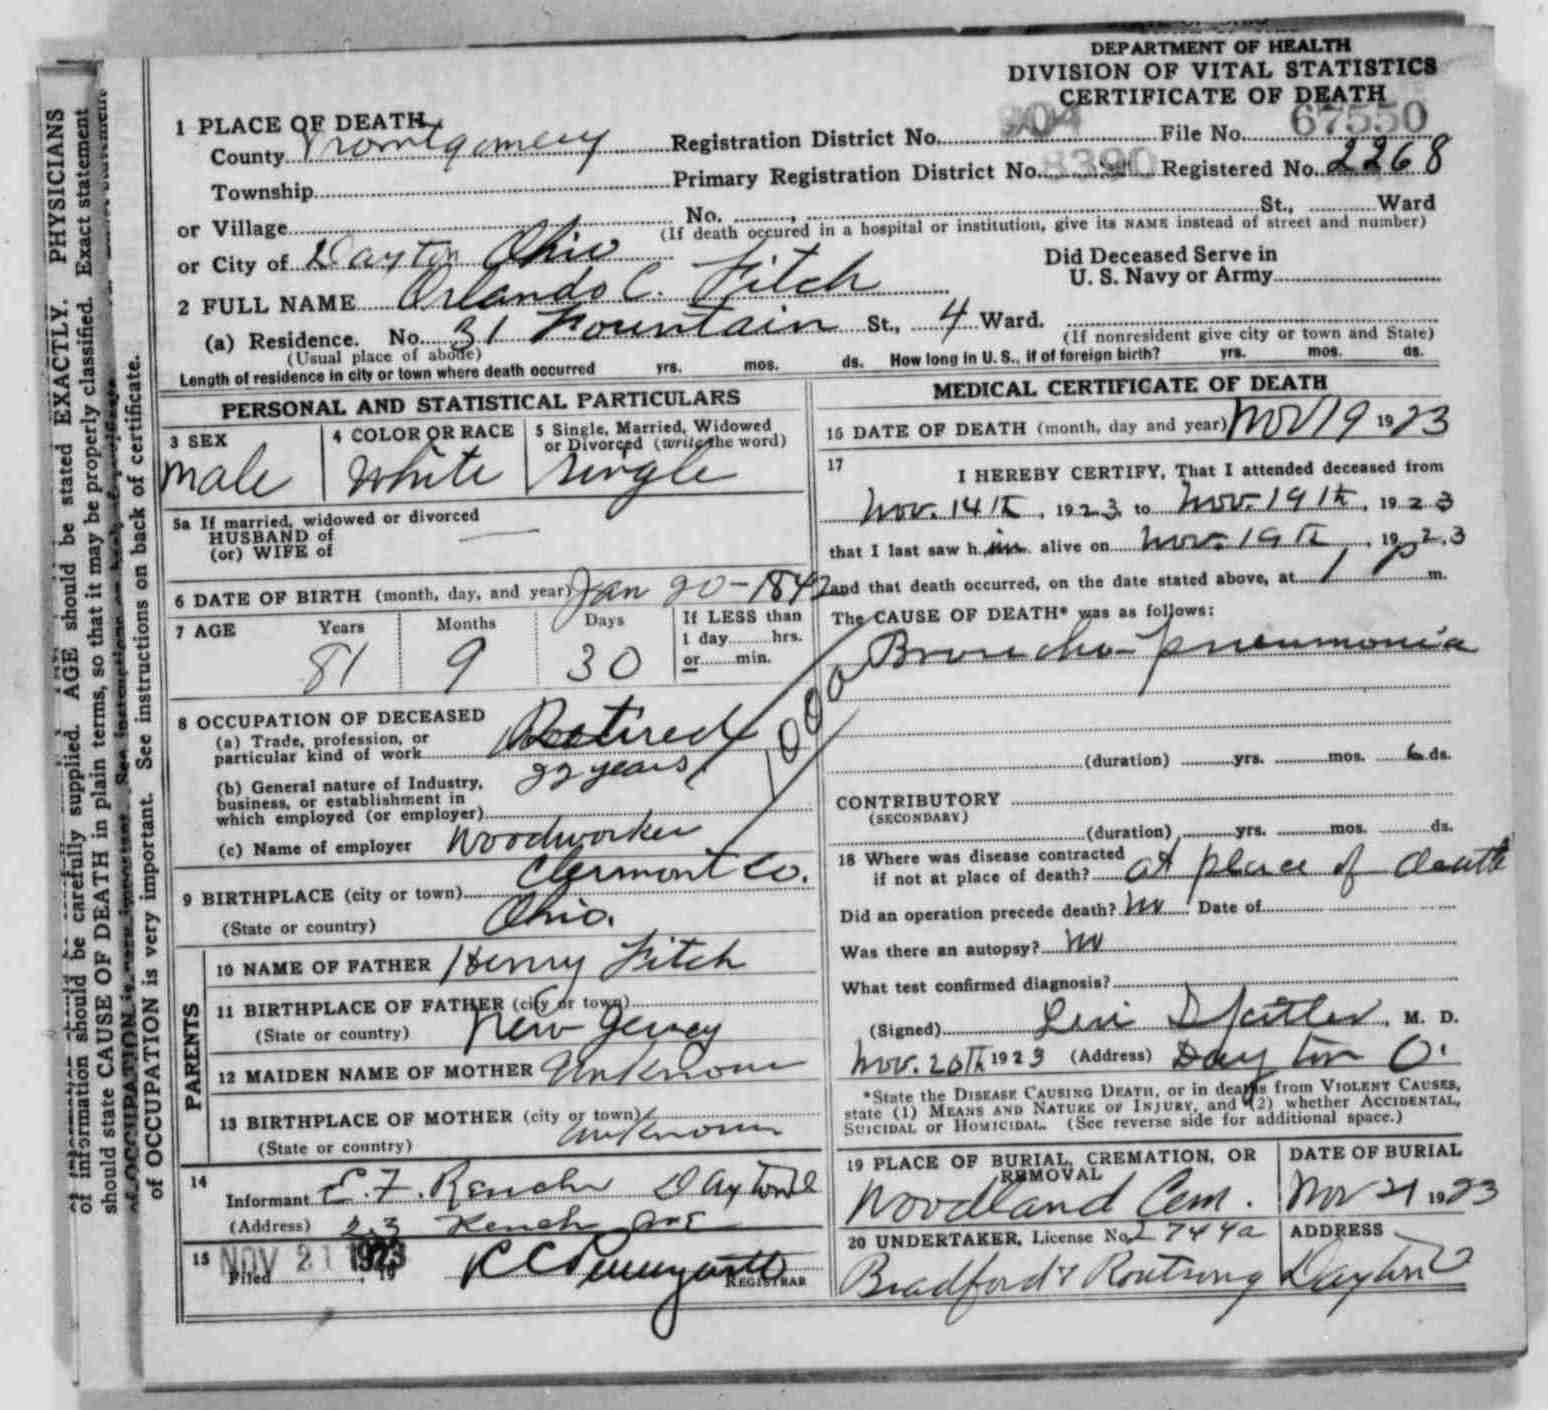 DEPARTMENT OF HEALTH
DIVISION OF VITAL STATISTICS
CERTIFICATE OF DEATH
1 PLACE OF DEATH
County Montgomery Registration District No. 904 File No. 67550
Township Primary Registration District No. 8390 Registered No. 2268
or Village No. , St., Ward
(If death occured in a hospital or institution, give its NAME instead of street and number)
or City of Dayton Ohio
Did Deceased Serve in
U. S. Navy or Army
2 FULL NAME Orlando C. Fitch
(a) Residence. No. 31 Fountain St., 4 Ward.
(Usual place of abode) (If nonresident give city or town and State)
Length of residence in city or town where death occurred yrs. mos. ds. How long in U. S., if of foreign birth? yrs. mos. ds.
PERSONAL AND STATISTICAL PARTICULARS
3 SEX 4 COLOR OR RACE 5 Single, Married, Widowed
or Divorced (write the word)
Male White Single
5a If married, widowed or divorced
HUSBAND of
(or) WIFE of —
6 DATE OF BIRTH (month, day, and year) Jan 20-1842
7 AGE Years Months Days If LESS than
1 day hrs.
or min.
81 9 30
8 OCCUPATION OF DECEASED
(a) Trade, profession, or
particular kind of work Retired
22 years
(b) General nature of Industry,
business, or establishment in
which employed (or employer)
(c) Name of employer Woodworker
9 BIRTHPLACE (city or town) Clermont Co.
(State or country) Ohio.
PARENTS
10 NAME OF FATHER Henry Fitch
11 BIRTHPLACE OF FATHER (city or town)
(State or country) New Jersey
12 MAIDEN NAME OF MOTHER Unknown
13 BIRTHPLACE OF MOTHER (city or town)
(State or country) Unknown
14
Informant E. F. Rench Dayton O
(Address) 23 Rench Ave
15 NOV 21 1923
Filed , 19
REGISTRAR
MEDICAL CERTIFICATE OF DEATH
16 DATE OF DEATH (month, day and year) Nov 19 1923
17 I HEREBY CERTIFY, That I attended deceased from
Nov. 14th, 1923 to Nov. 19th, 1923
that I last saw him alive on Nov. 19th, 1923
and that death occurred, on the date stated above, at 1 P m.
The CAUSE OF DEATH* was as follows:
Broncho-pneumonia
100a
(duration) yrs. mos. 6 ds.
CONTRIBUTORY
(SECONDARY)
(duration) yrs. mos. ds.
18 Where was disease contracted
if not at place of death? at place of death
Did an operation precede death? no Date of
Was there an autopsy? no
What test confirmed diagnosis?
(Signed) Levi , M. D.
Nov. 20th 1923 (Address) Dayton O.
*State the DISEASE CAUSING DEATH, or in deaths from VIOLENT CAUSES,
state (1) MEANS AND NATURE OF INJURY, and (2) whether ACCIDENTAL,
SUICIDAL or HOMICIDAL. (See reverse side for additional space.)
19 PLACE OF BURIAL, CREMATION, OR
REMOVAL DATE OF BURIAL
Woodland Cem. Nov 21 1923
20 UNDERTAKER, License No. 2744a ADDRESS
Bradford & Routsong Dayton O
of information should be carefully supplied. AGE should be stated EXACTLY. PHYSICIANS
should state CAUSE OF DEATH in plain terms, so that it may be properly classified. Exact statement
of OCCUPATION is very important. See instructions on back of certificate.